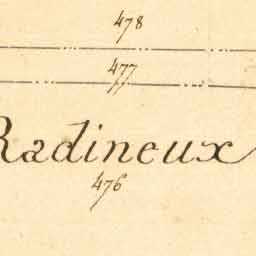 478
477
Radineux
476